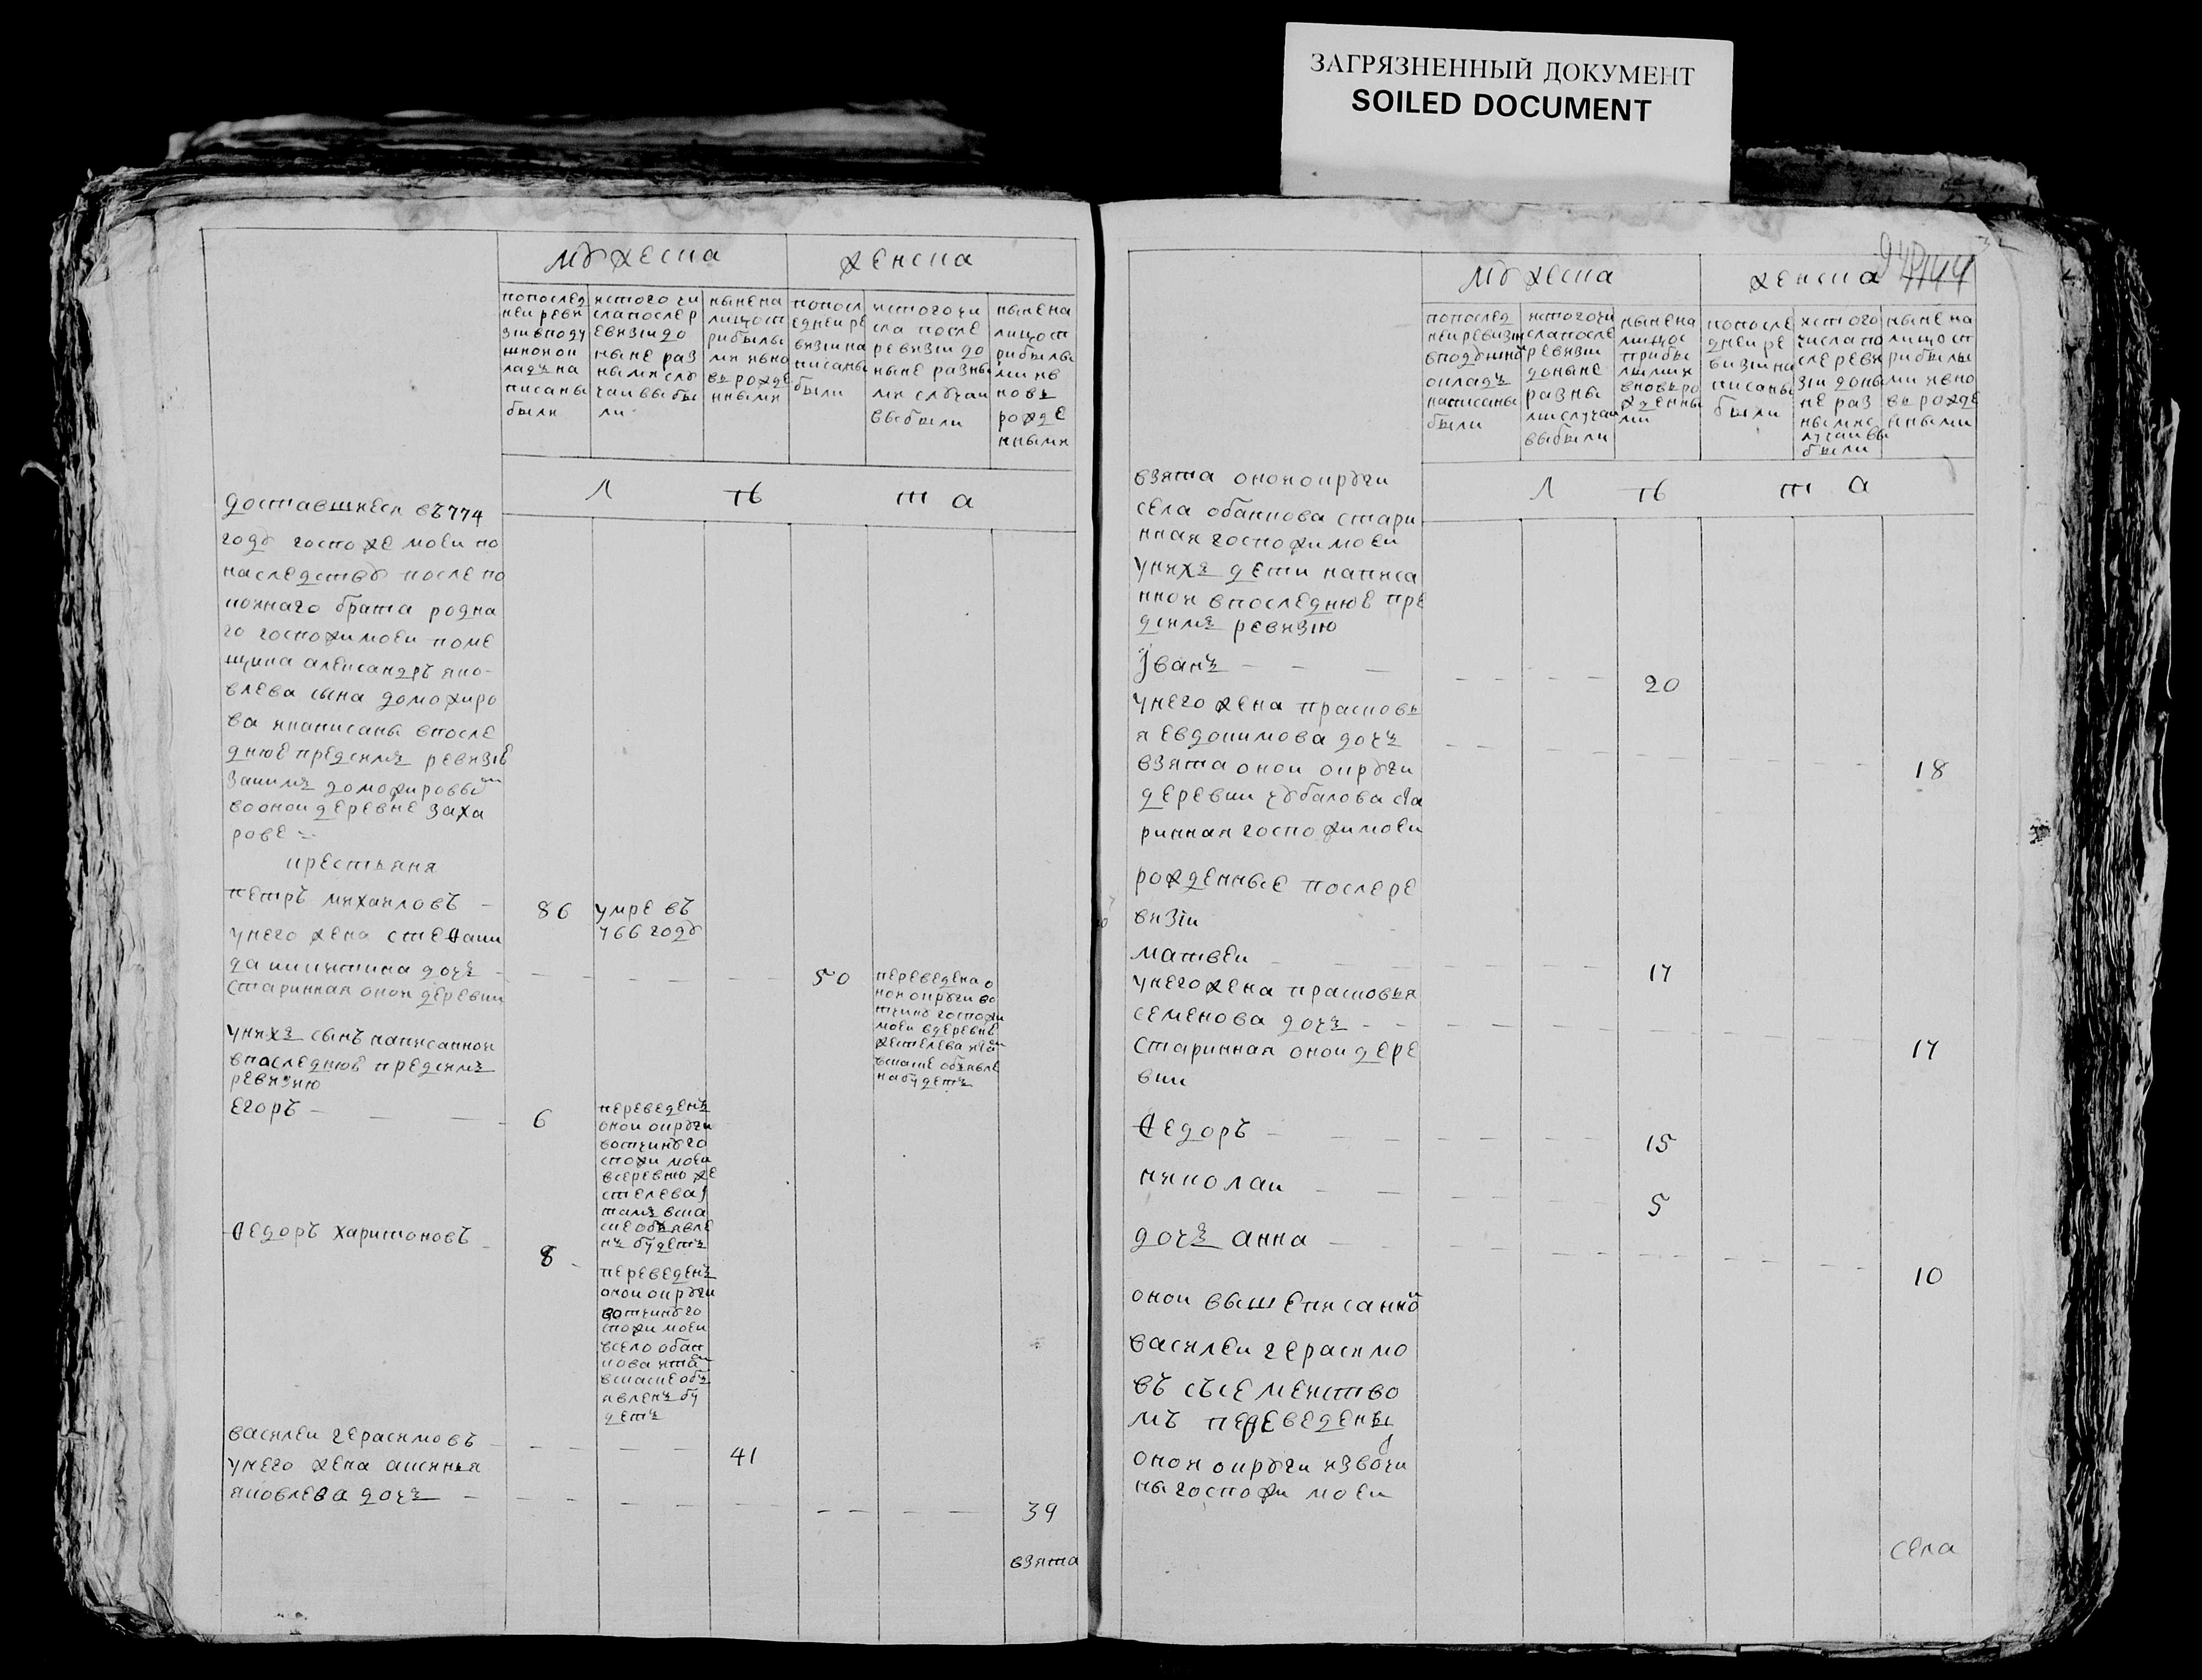 ЗАГРЯЗНЕННЫЙ ДОКУМЕНТ
SOILED DOCUMENT
мужеска
женска
попослед
неи реви
зиивподу
шнонои
ладъ на
писаны
были
истого чи
слапослер
евизии до
ныне раз
нымислу
чаивыбы
ли
ныне на
лицо сп
рибылы
ми ивно
вь рожде
нными
попосл
еднеире
визии на
писаны
были
истого чи
сла после
ревизии до
ныне разны
ми случаи
выбыли
ныне на
лицо сп
рибылы
ми ив
новь
рожде
нными
л ѣ т а
доставшиеся въ 774
году госпоже моеи по
наследству после по
коинаго брата родна
го госпожи моеи поме
щика александръ яко-
влева сына доможиро
ва инаписаны впосле
днюе предсимъ ревизие
закимъ доможировым
воонои деревне заха
рове
крестьяня
петръ михаиловъ — 86 умре въ
766 году
унего жена стефани
да никитина дочь — 50
старинная онои деревни
переведена о
нои округи во
тчину госпожи
моеи вдеревнѣ
жестелева итам
вскаске обявле
на будетъ
унихъ сынъ написаннои
впоследнюе предсимъ
ревизию
егоръ — 6
переведенъ
онои округи
вотчину го
спожи моеи
вдеревню же
стелева i
тамъ вска
ске обьявле
нъ будетъ
федоръ харитоновъ 8
переведенъ
онои округи
вотчину го
спожи моеи
всело обак
кова итам
вскаске обь
явленъ бу
детъ
василеи герасимовъ 41
унего жена аксинья
яковлева дочь — 39
взята
мужеска
женска
попослед
неи ревизии
вподушнои
окладъ
написаны
были
истогочи
слапосле
ревизии
доныне
разны
ми случаи
выбыли
ныне на
лицос
прибы
лыми и
вновь ро
жденны
ми
попосле
днеи ре
визии на
писаны
были
истого
числа по
сле реви
зии доны
не раз
ными с
лучаи вы
были
ныне на
лицо сп
рибылы
ми ивно
вь рожде
нными
л ѣ т а
взята онои округи
села обакнова стари
нная госпожи моеи
унихъ дети написа
ннои впоследнюе пре
дсимъ ревизию
Jванъ — 20
унего жена прасковь
я евдокимова дочь 18
взята онои округи
деревни чубалова ста
ринная госпожи моеи
рожденные послере
визии
матвеи 17
унего жена прасковья
семенова дочь — 17
старинная онои дере
вни
федоръ — 15
николаи — 5
дочь анна — 10
онои вышеписаннои
василеи герасимо
въ съсемеиство
мъ переведены
онои округи извотчи
ны госпожи моеи
села